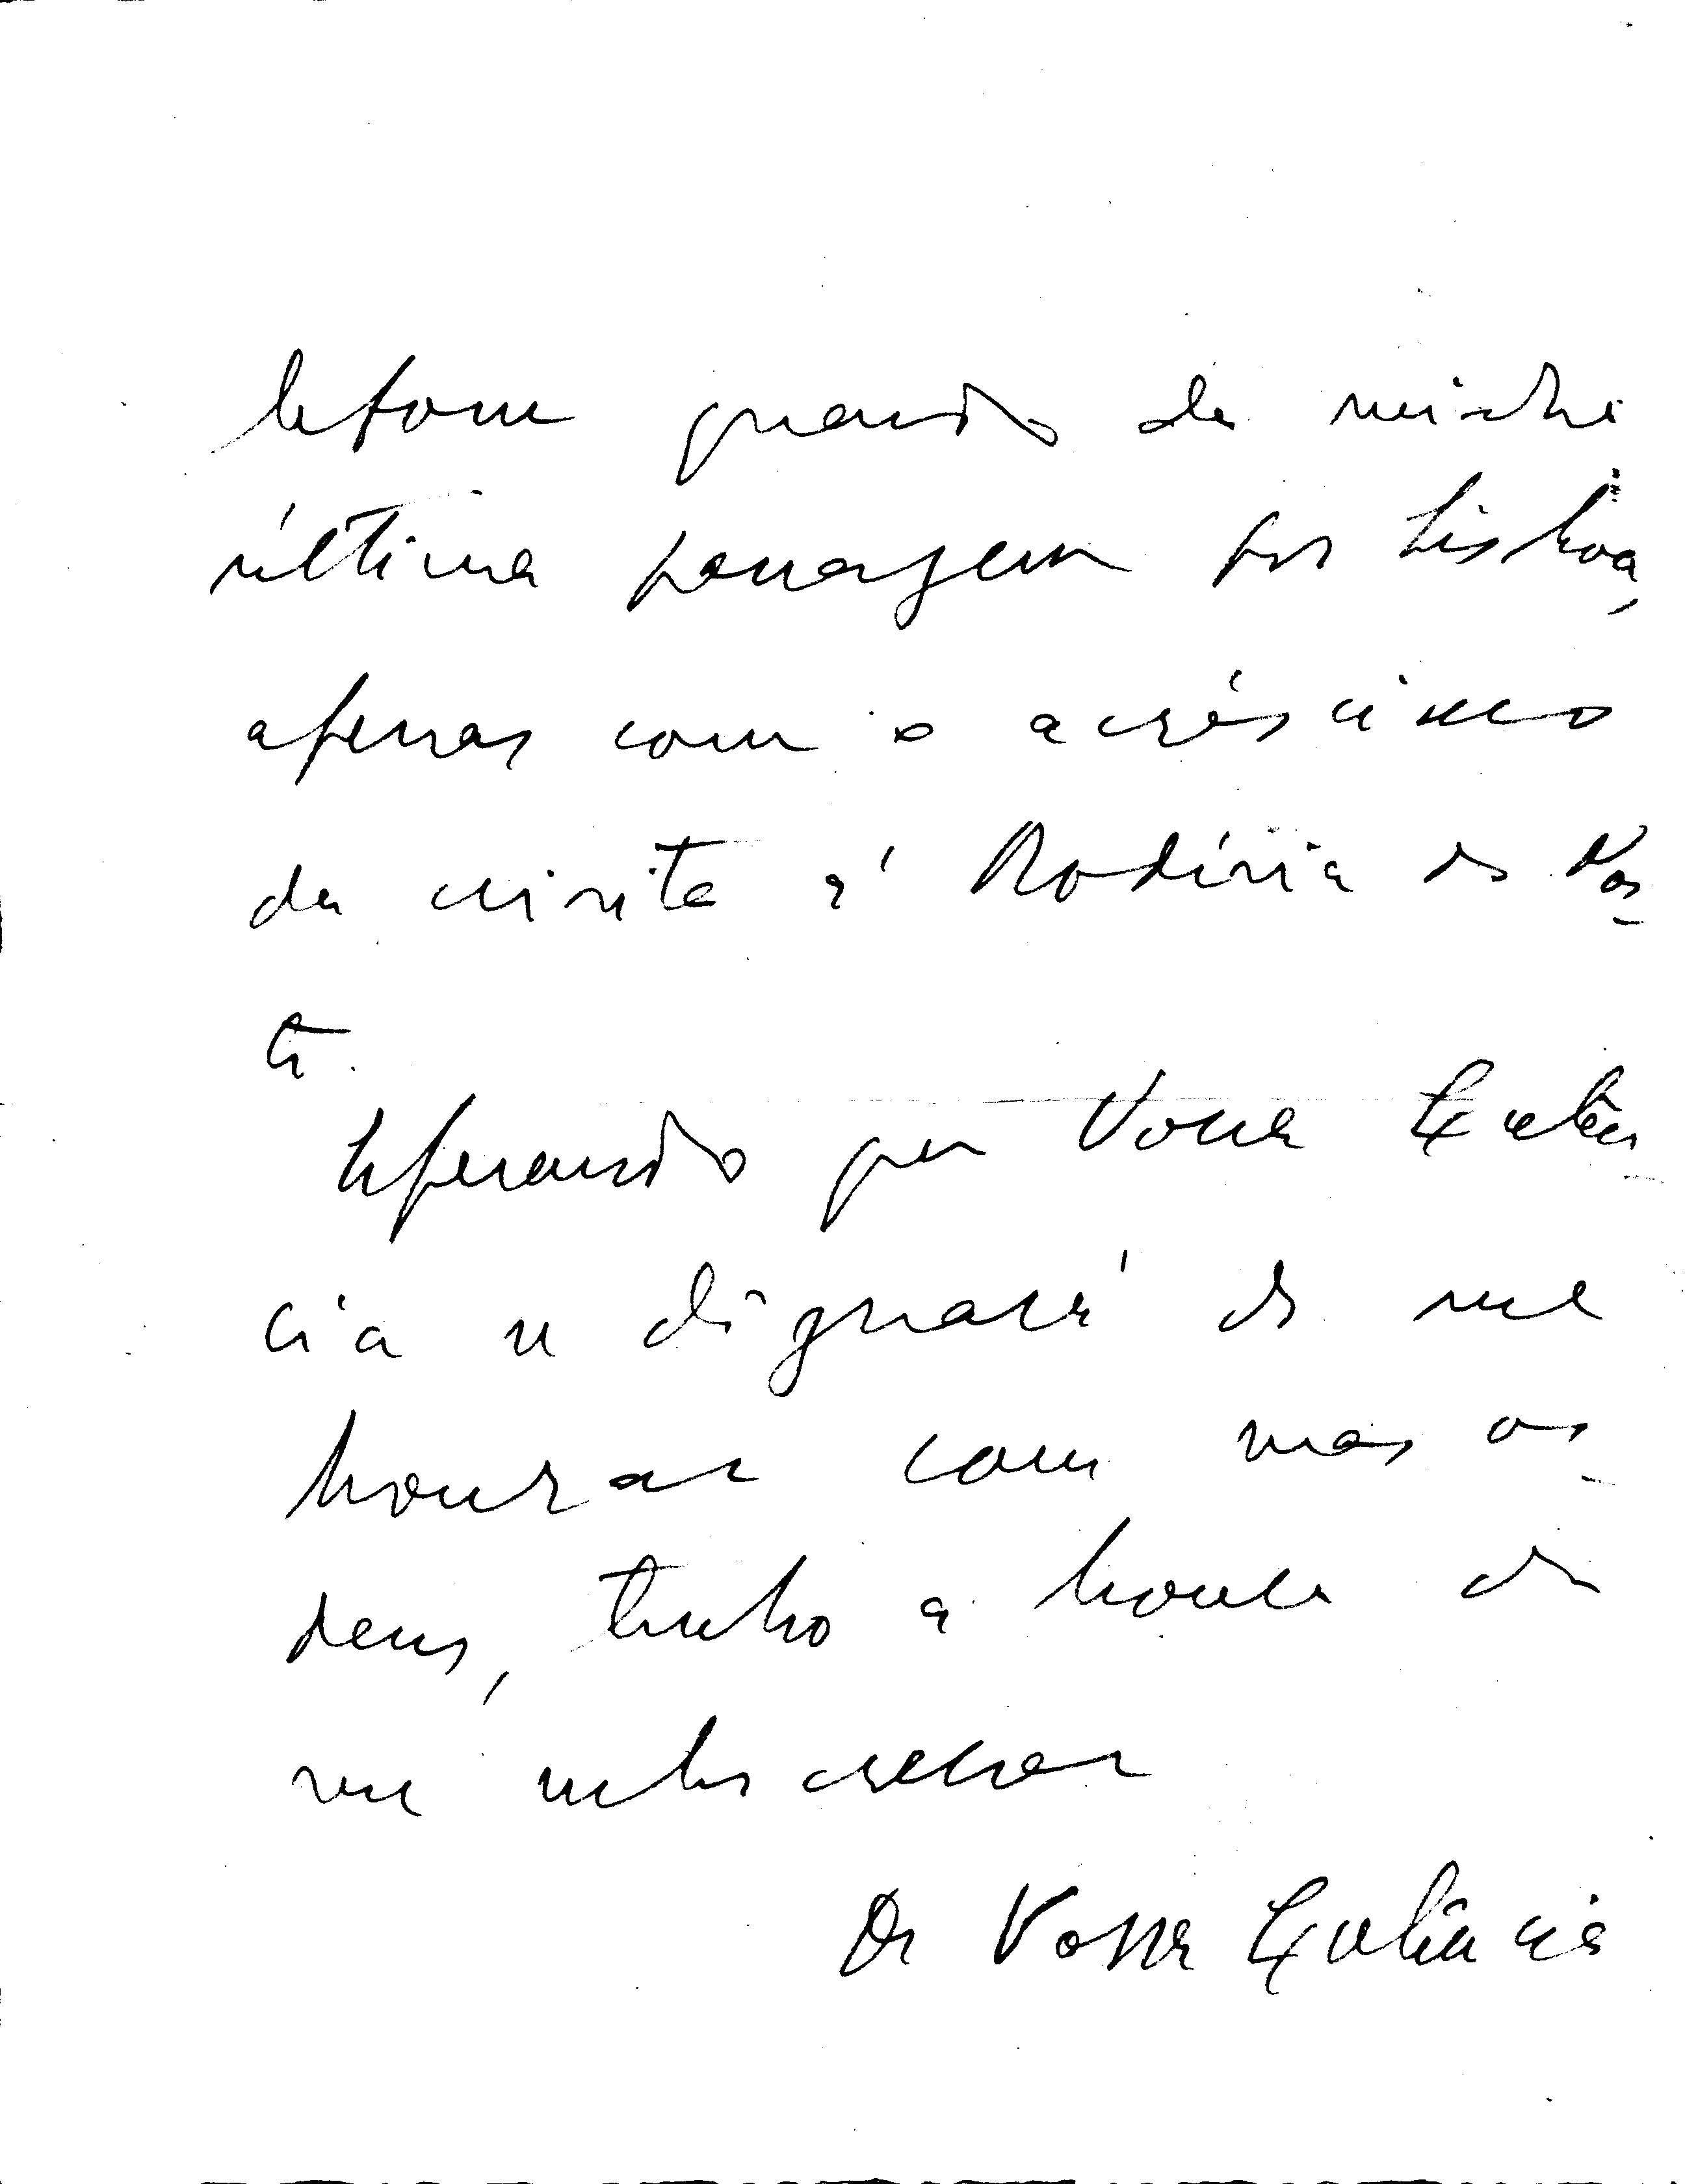 quando da minha
última passagem por Lisboa,
apenas com o acréscimo
da visita à Rodésia do Nor-
te.
Esperando que Vossa Excelên
cia se dignará de me
honrar com suas or-
dens, tenho a honra de
me subscrever
De Vossa Excelência